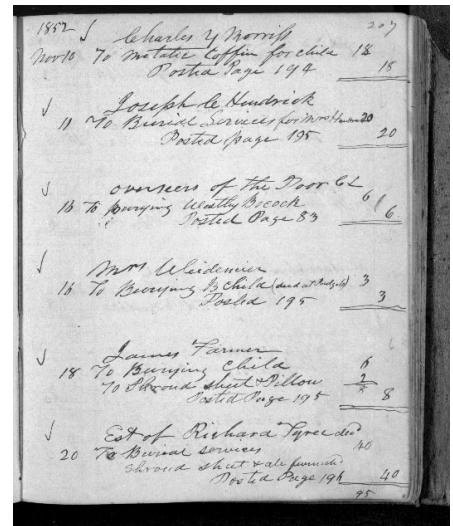 1852 207
Charles Y Morriss
Nov 10 To Metalic Coffin for child 18
Posted Page 194 18
Joseph C Hendrick
11 To Burial Services for Mrs 20
Posted page 195 20
overseers of the Poor CL
16 To Burying Westly Bocock 6
Posted Page 83 6
Mrs Weidemier
16 To Burying B Child (died at 3
Posted 195 3
James Farmer
18 To Burying Child 6
To Shroud sheet & Pillow 2
Posted Page 195 8
Est of Richard Tyree decd
20 To Burial services 40
Shroud sheet & ale furnished
Posted Page 196 40
95